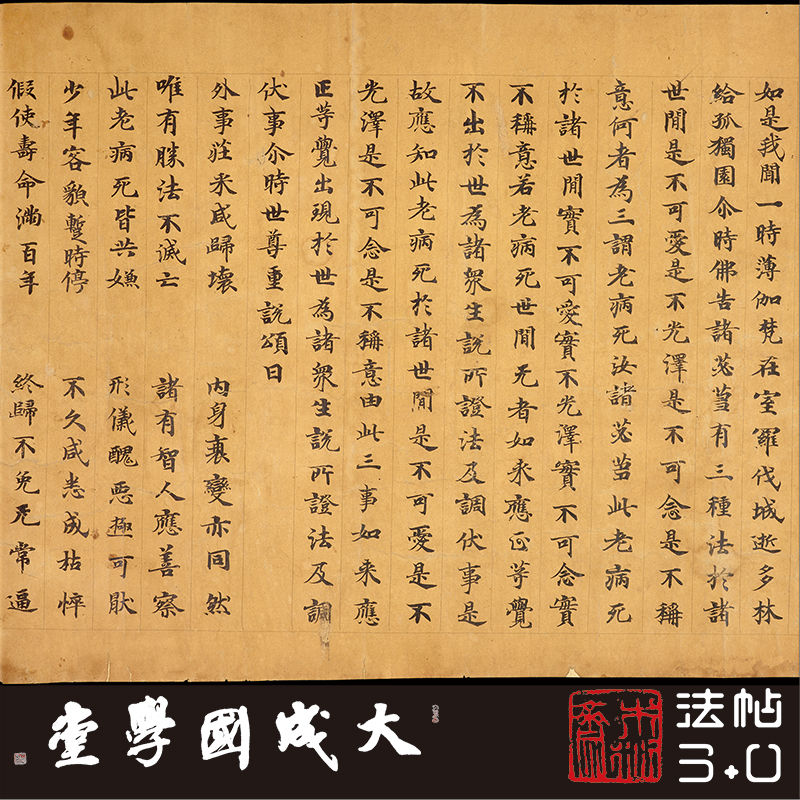 如是我聞一時薄伽梵在室羅伐城逝多林
給孤獨園尒時佛告諸苾蒭有三種法於諸
世間是不可愛是不光澤是不可念是不稱
意何者為三謂老病死汝諸苾蒭此老病死
於諸世間實不可愛實不光澤實不可念實
不稱意若老病死世間无者如來應正等覺
不出於世為諸眾生說所證法及調伏事是
故應知此老病死於諸世間是不可愛是不
光澤是不可念是不稱意由此三事如來應
正等覺出現於世為諸眾生說所證法及調
伏事尒時世尊重說頌曰
外事莊采咸歸壞 內身衰變亦同然
唯有勝法不滅亡 諸有智人應善察
此老病死皆共嫌 形儀醜惡極可猒
少年容貌暫時停 不久咸悉成枯悴
假使壽命滿百年 終歸不免无常逼
大成國學堂
法帖
3.0